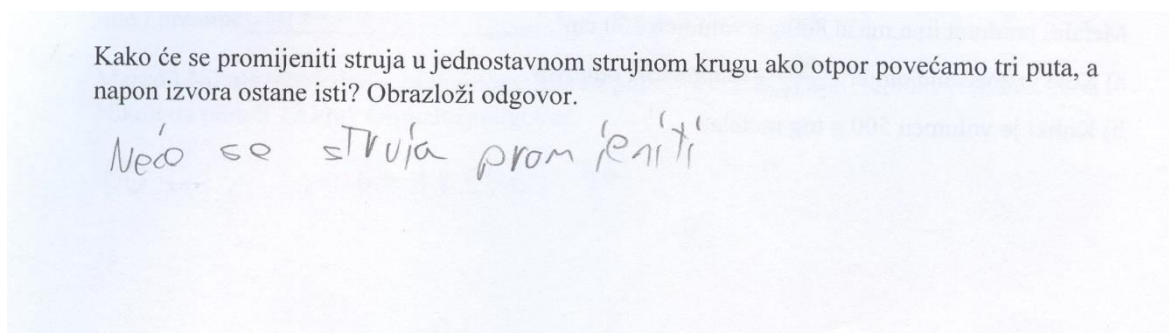 Kako će se promijeniti struja u jednostavnom strujnom krugu ako otpor povećamo tri puta, a
napon izvora ostane isti? Obrazloži odgovor.
Neće se struja promjeniti